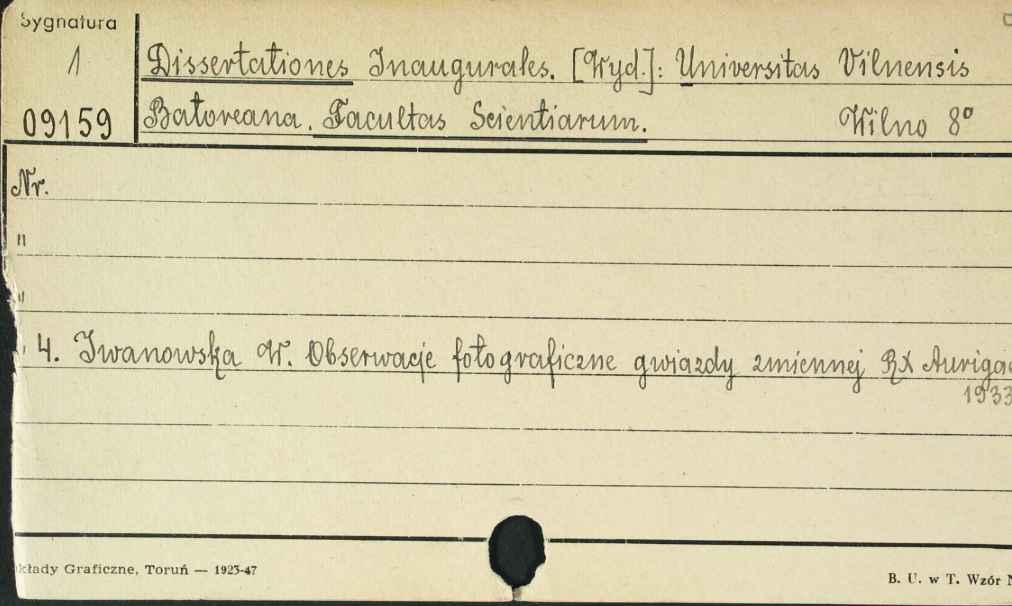 Sygnatura
1
09159
Dissertationes Inaugurales. [Wyd.]: Universitas Vilnensis
Batoreana. Facultas Scientiarum. Wilno 8º
Nr.
"
"
" 4. Iwanowska W. Obserwacje fotograficzne gwiazdy zmiennej RX Aurigae
1933
kłady Graficzne, Toruń — 1923-47
B. U. w T. Wzór N